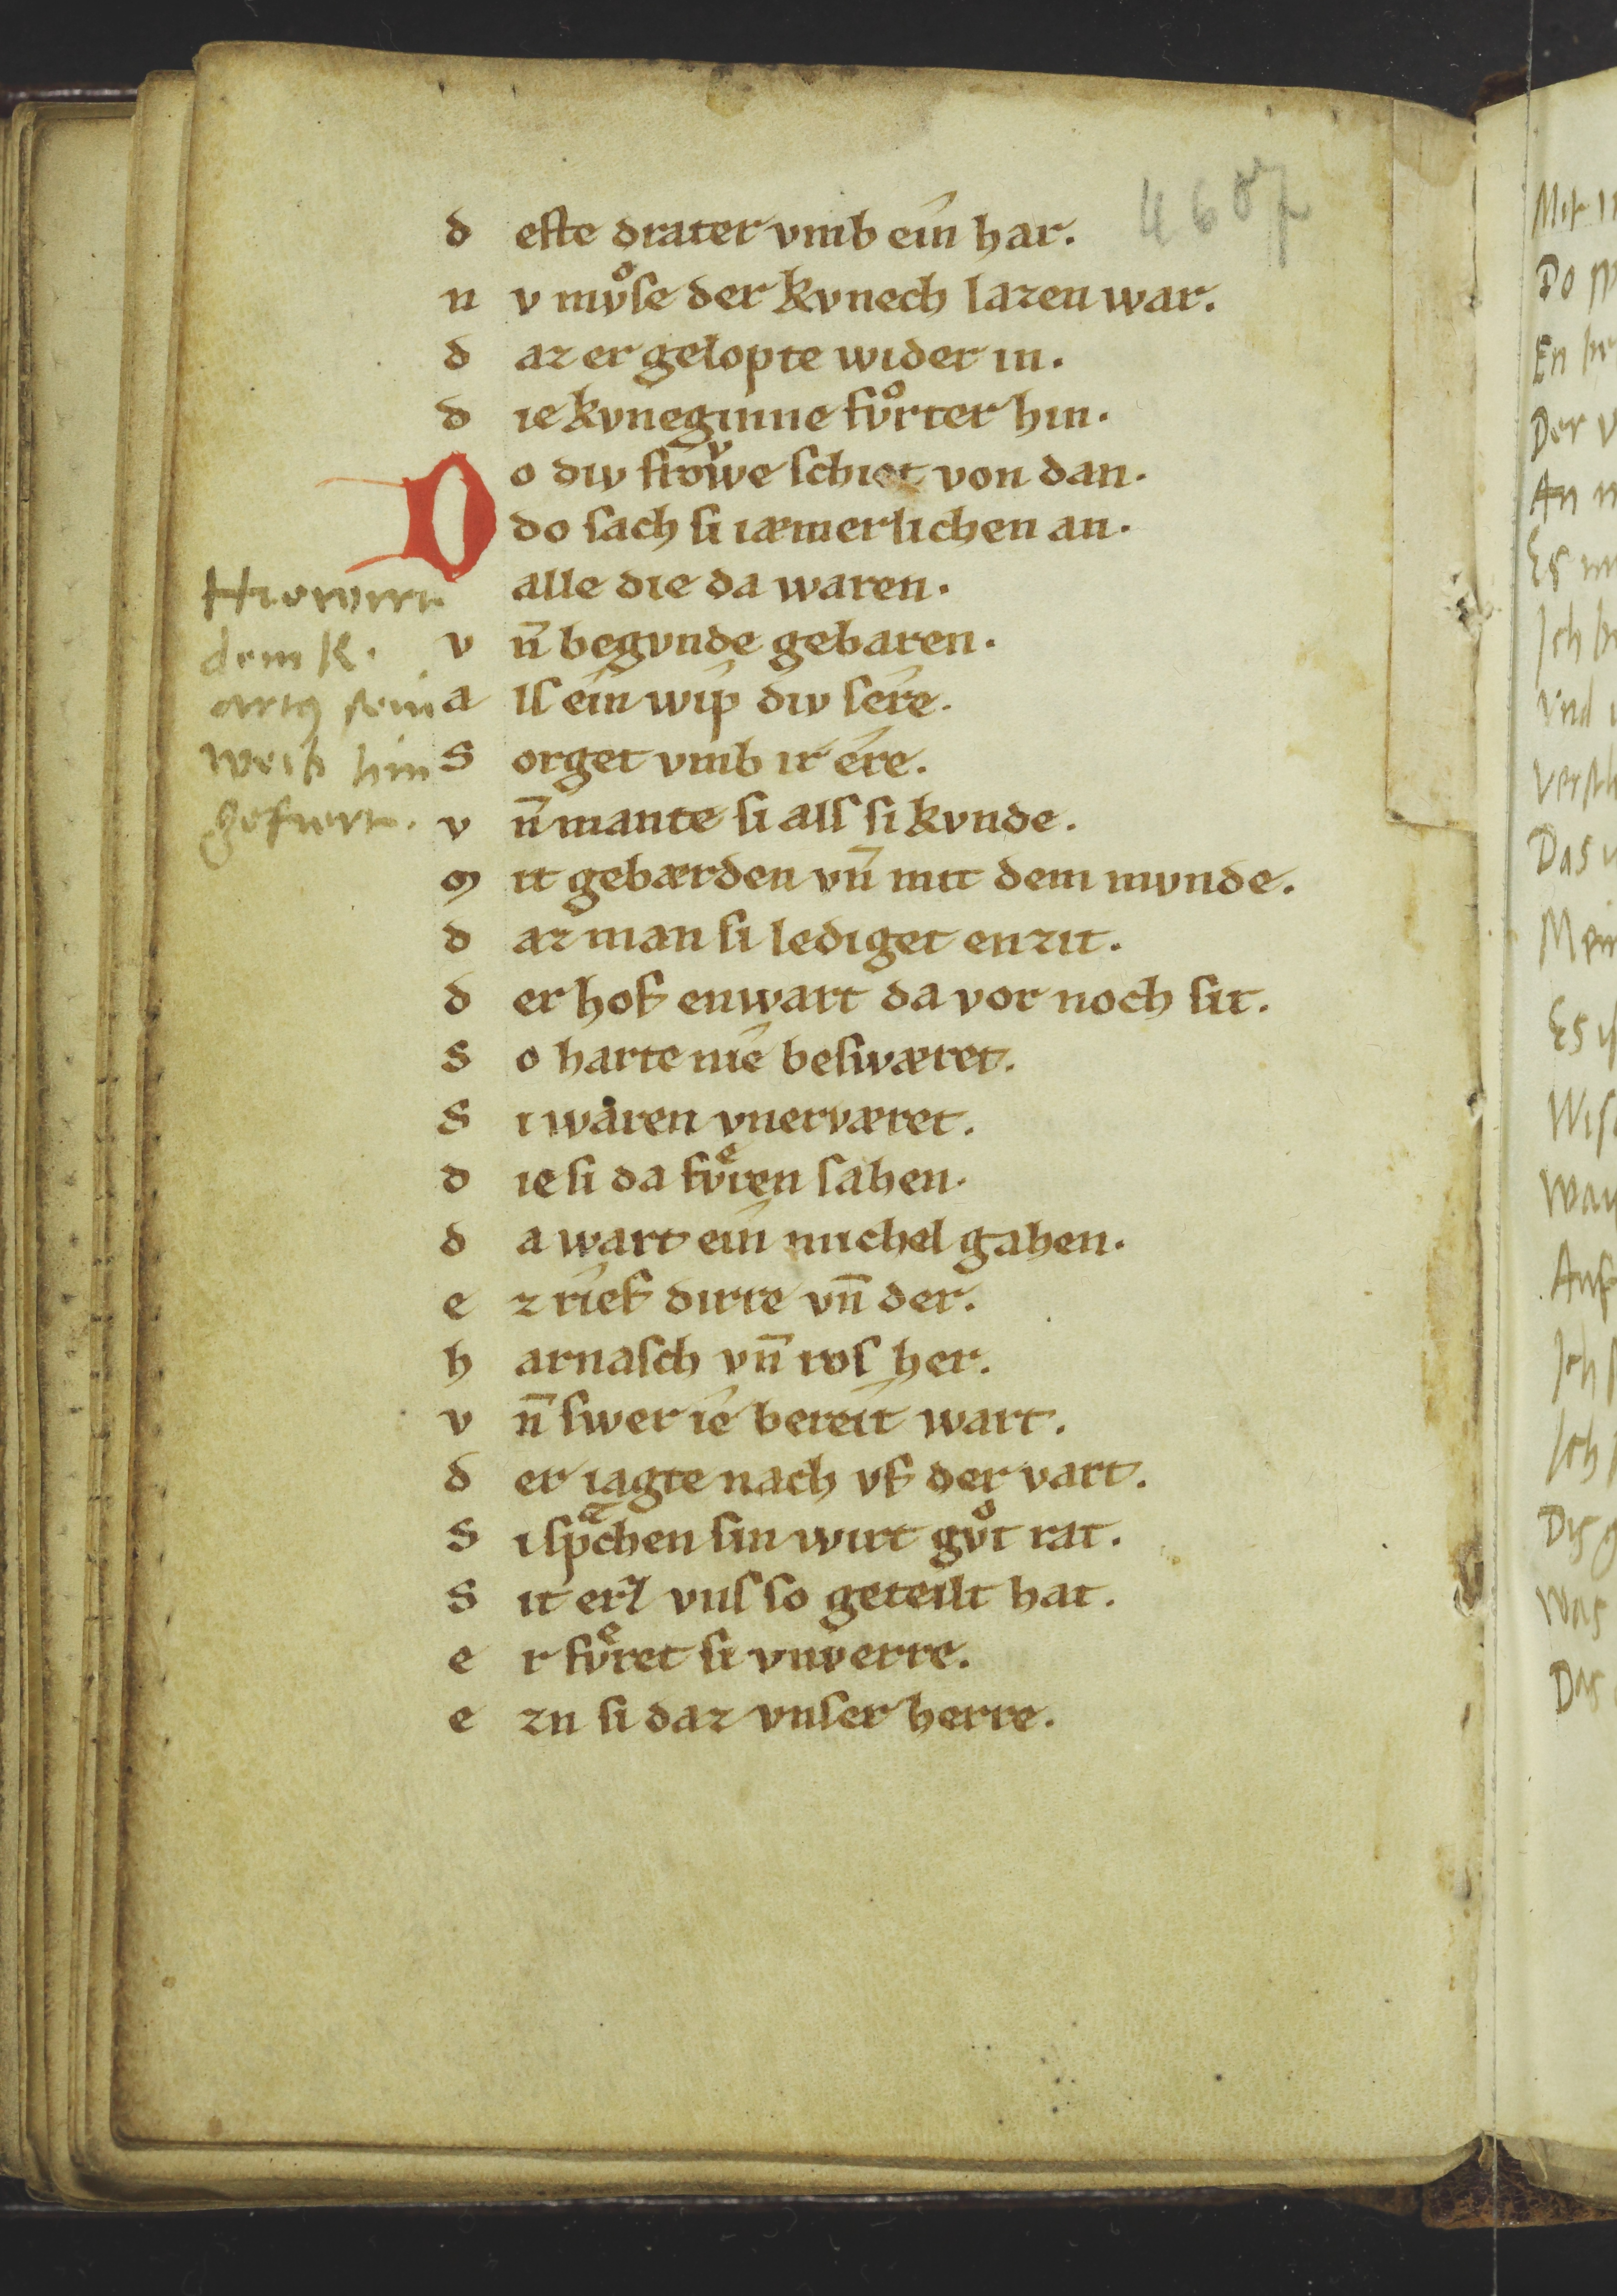 4607
d eſte drater vmb ein har.
n v mvͦſe der kvnech lazen war.
d az er gelopte wider in.
d ie kvneginne fvͦrter hin.
D o div froͮwe schiet von dan.
do ſach ſi iæmerlichen an.
alle die da waren.
v n̄ begvnde gebaren.
a lſ ein wip div ſere.
S orget vmb ir ere.
v n̄ mante ſi alſ ſi kvnde.
m it gebærden vn̄ mit dem mvnde.
d az man ſi lediget enzit.
d er hof enwart da vor noch ſit.
S o harte nie beſwæret.
S i waren vnerværet.
d ie ſi da fvͤren ſahen.
d a wart ein michel gahen.
e z rief dirre vn̄ der.
h arnaſch vn̄ roſ her.
v n̄ ſwer ie bereit wart.
d er iagte nach vf der vart.
S i ſpͣchen ſin wirt gvͦt rat.
S it erz vnſ ſo geteilt hat.
e r fvͤret ſi vnverre.
e zn ſi daz vnſer herre.
Hie wirt
dem K.
artꝰ ſein
weib hin
gefuert.